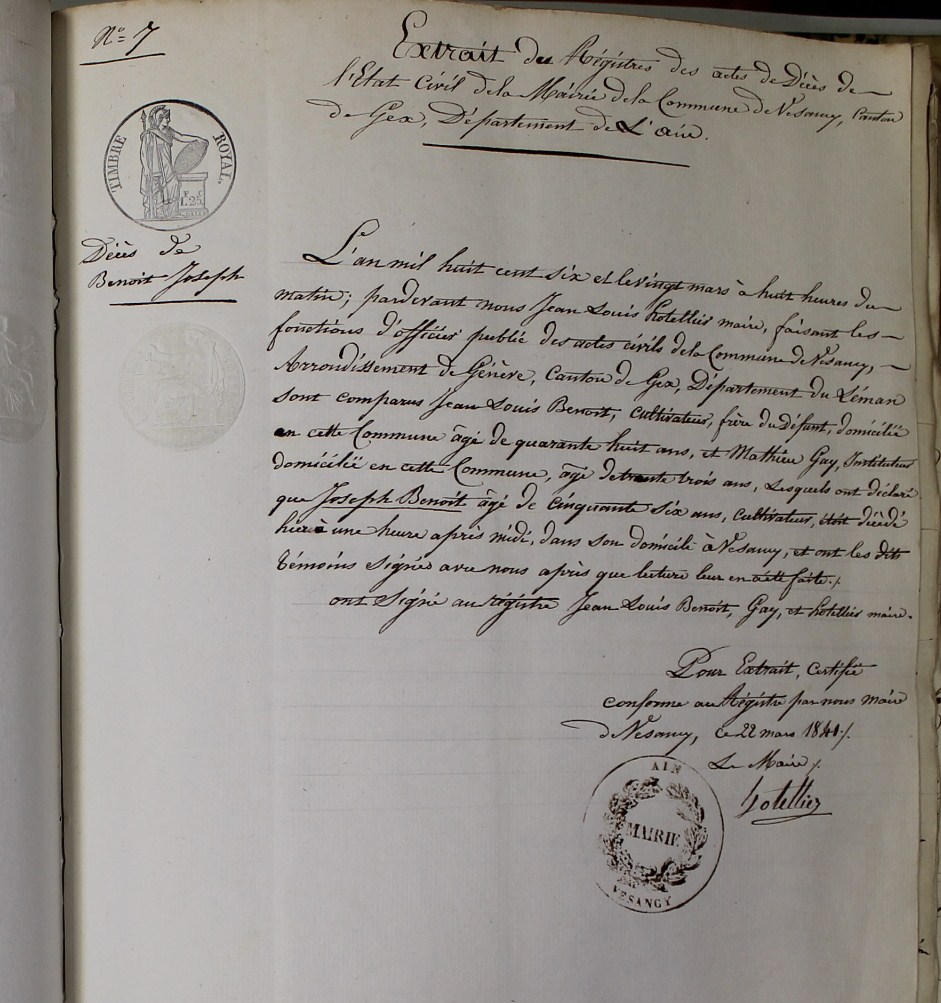 N.o 7
Extrait des Régistres des actes de Décès de
l'Etat Civil de la Mairie de la Commune de Vesancy, Canton
de Gex, Département de L'ain.
TIMBRE ROYAL.
F. C.
1.25
Décès de
Benoit Joseph
L'an mil huit cent six et le vingt mars à huit heures du
matin; pardevant nous Jean Louis hotellier maire, faisant les
fonctions d'officier public des actes civils de la Commune de Vesancy,
Arrondissement de Génève, Canton de Gex, Département du Léman
sont comparus Jean Louis Benoit, cultivateur, frère du défunt, domicilié
en cette Commune âgé de quarante huit ans, et Mathieu Gay, Instituteur
domicilié en cette Commune, âgé de trente trois ans, Lesquels ont déclaré
que Joseph Benoit âgé de cinquante six ans, cultivateur, étoit décédé
hier à une heure après midi, dans son domicile à Vesancy, et ont les dits
témoins signés avec nous après que lecture leur en a été faite./.
ont signé au régistre Jean Louis Benoit, Gay, et hotellier maire.
Pour Extrait, certifié
conforme au Régistre par nous maire
de Vesancy, ce 22 mars 1841./.
Le Maire/.
hotellier
AIN
MAIRIE
VESANCY